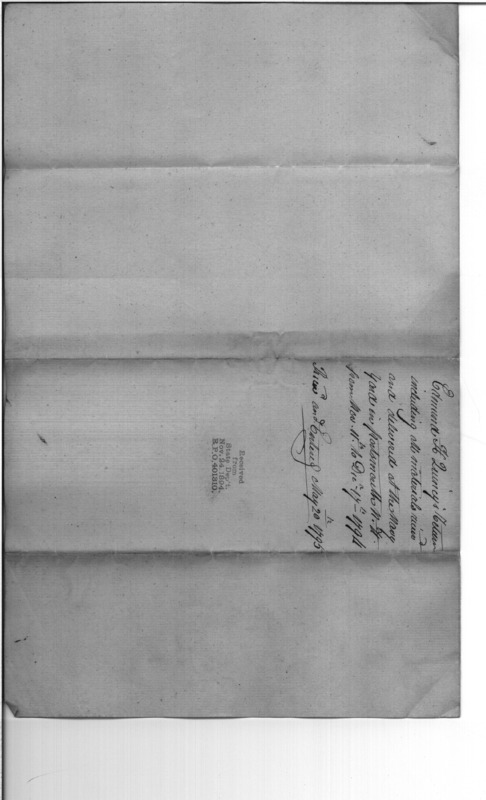 Edmund H. Quincy's Return
including all materials rec'd
and delivered at the Navy
Yard in Portsmouth N. H.
from Nov. 11th to Dec. 17th 1794
and May 20th 1795
Received
from
State Dep't,
Nov. 24, 1894.
R.P.O. 401810.